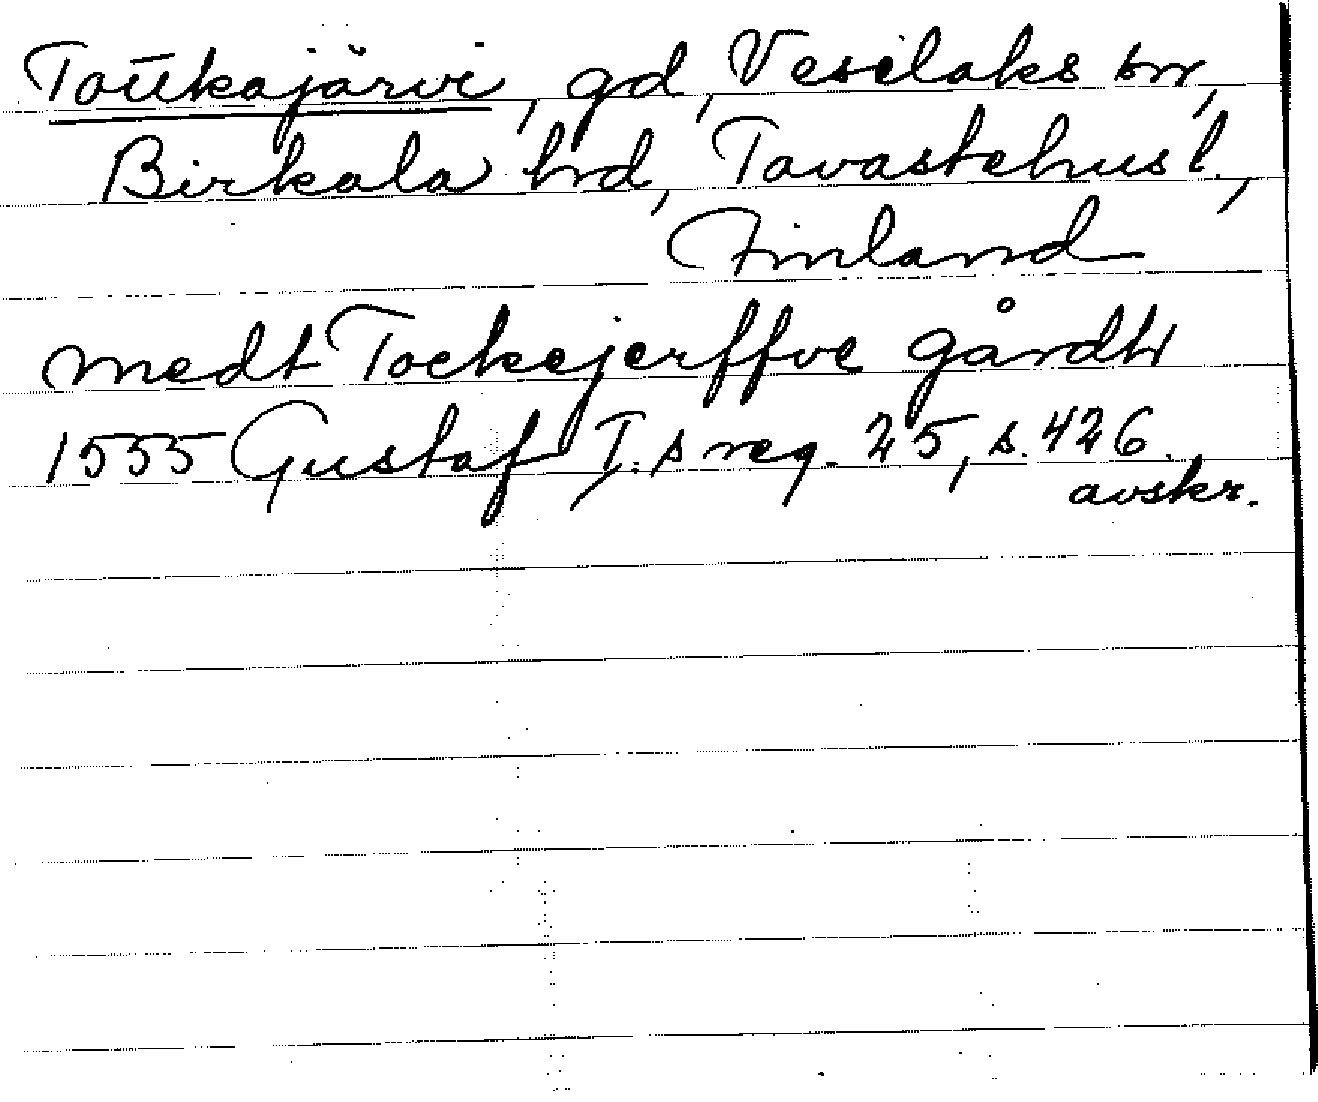 Toukajärvi, gd, Vesilaks sn,
Birkala hrd, Tavastehus l.,
Finland
medt Tockejerffve gårdh
1555 Gustaf I:s reg. 25, s. 426.
avskr.